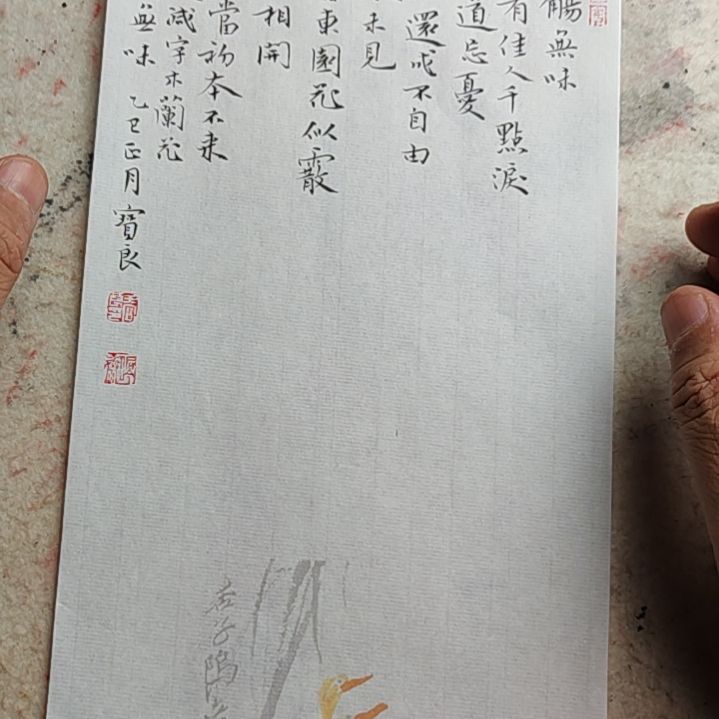 觴無味
有佳人千點淚
道忘憂
還成不自由
未見
東園花似霰
相開
當初本不來
減字木蘭花
無味 乙巳正月 寶良